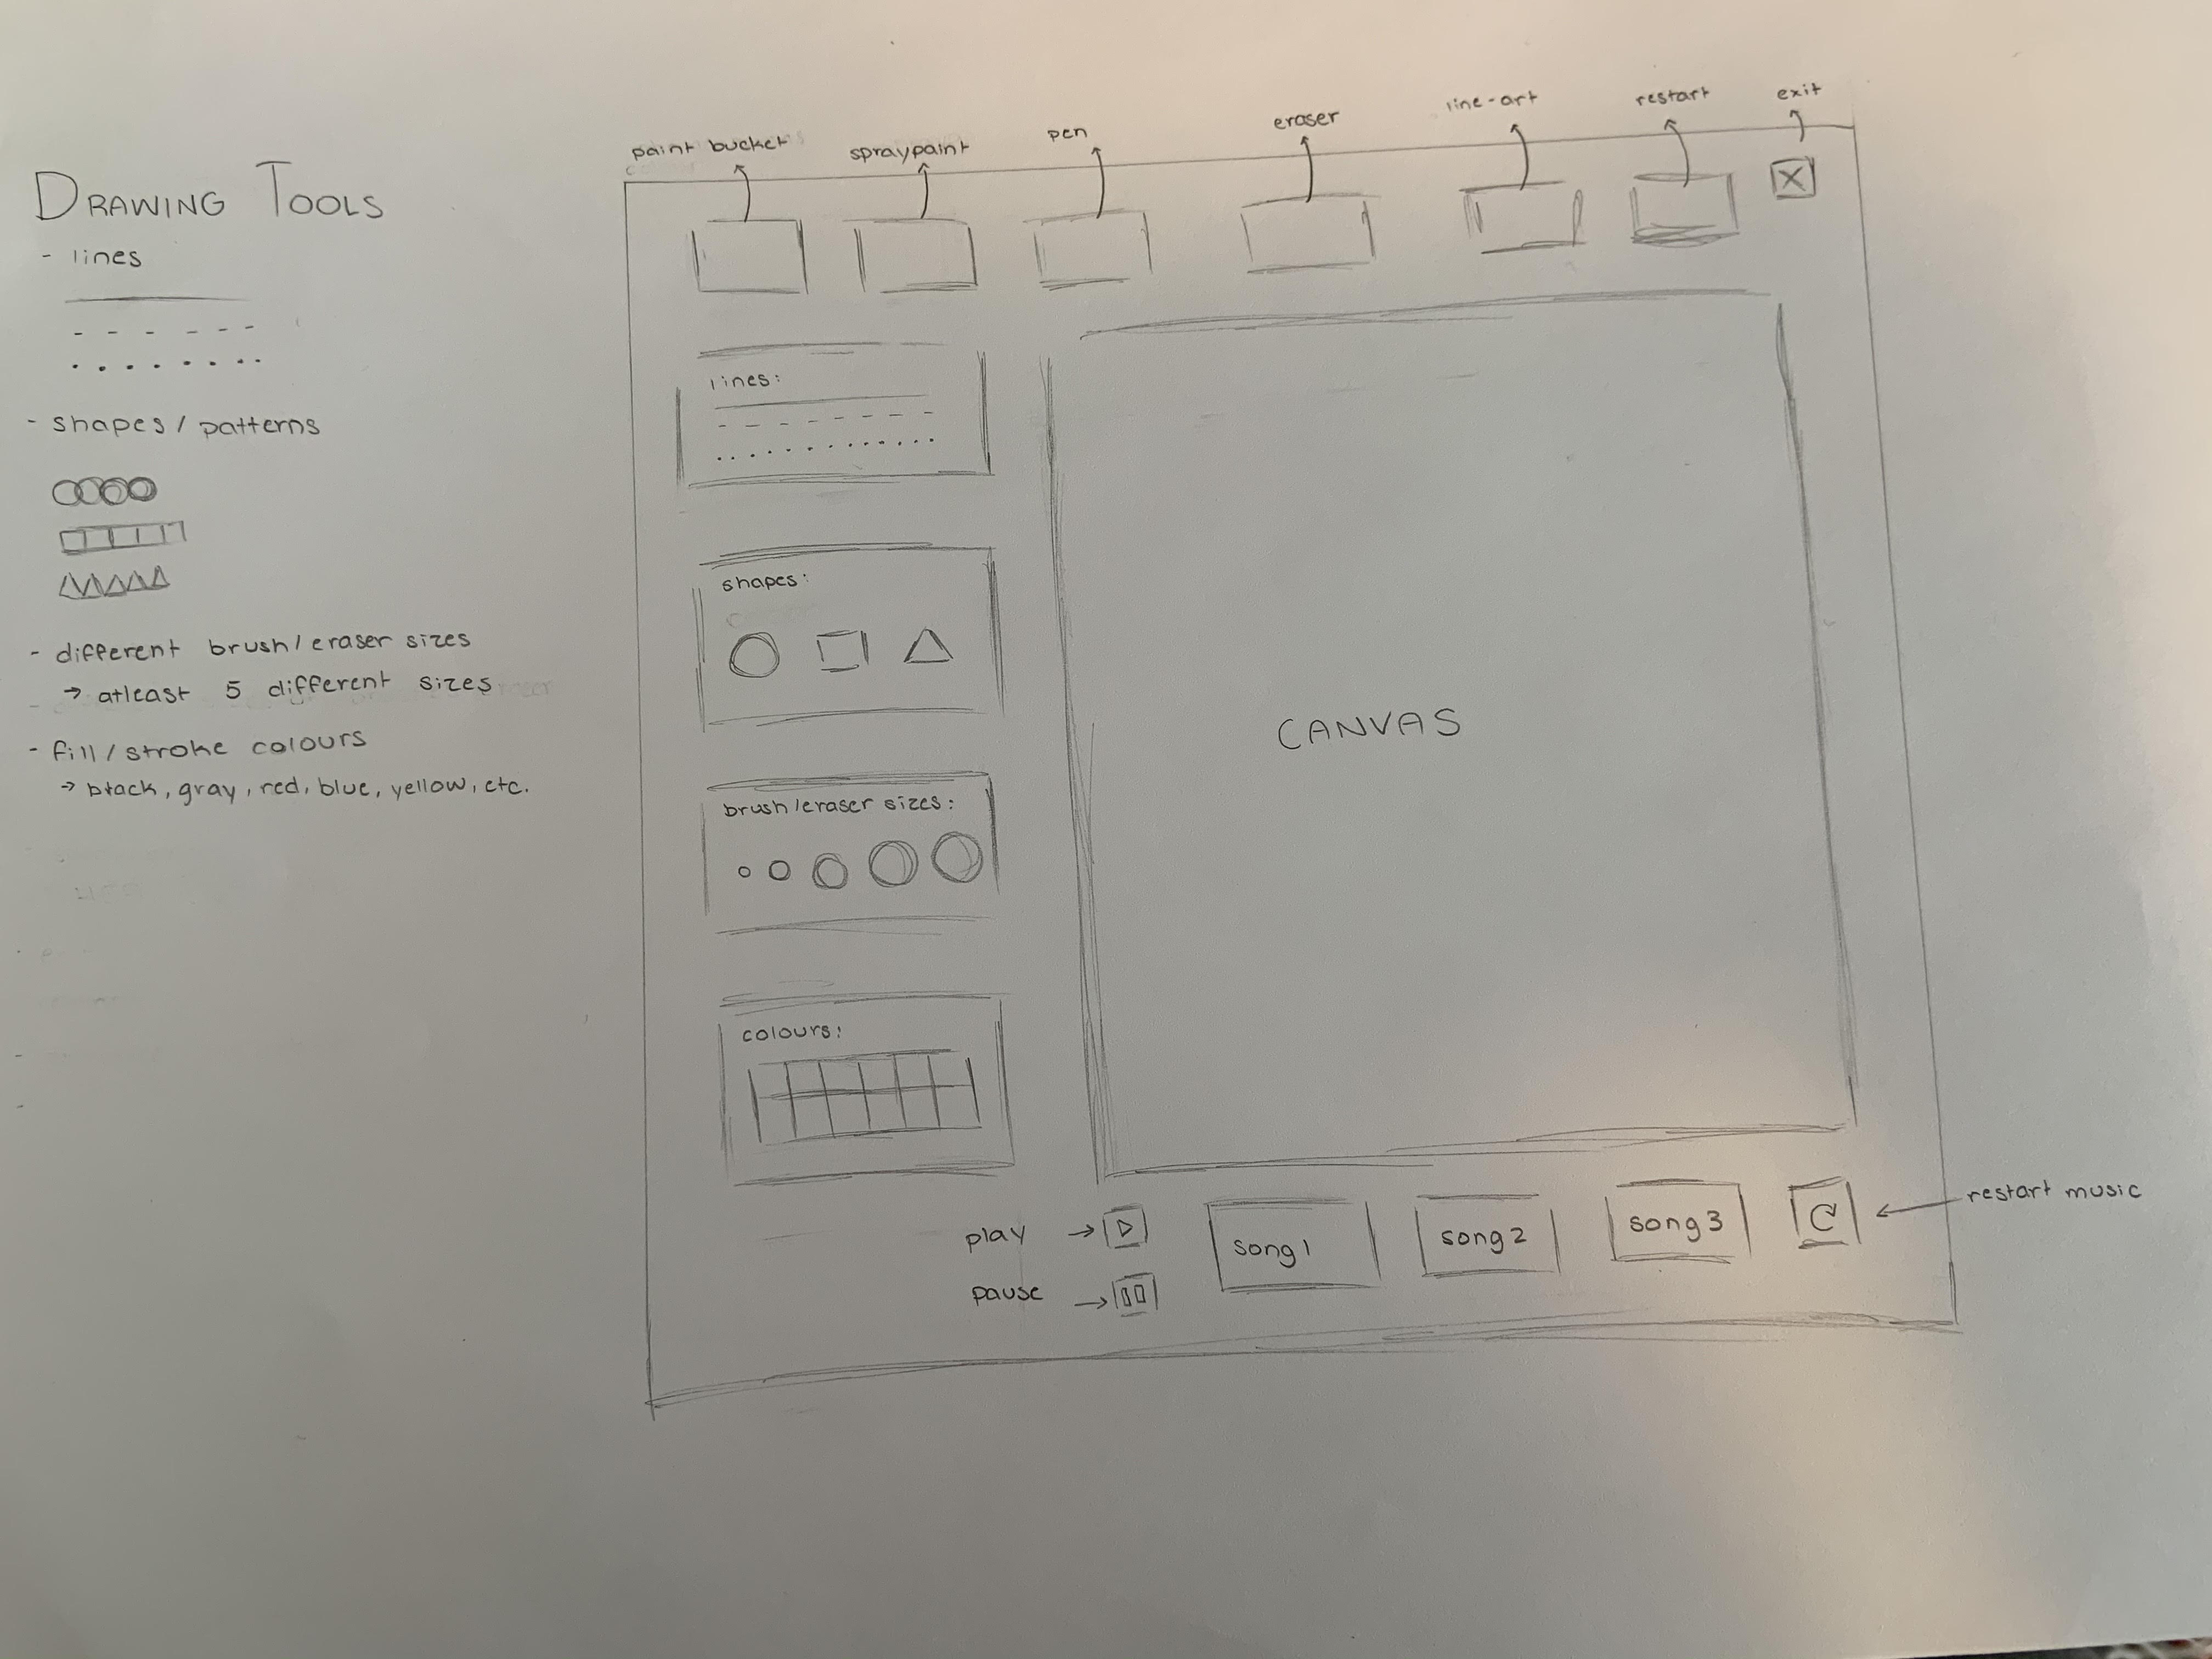 DRAWING TOOLS
- lines
- shapes / patterns
- different brush / eraser sizes
→ atleast 5 different sizes
- fill / stroke colours
→ black, gray, red, blue, yellow, etc.
paint bucket
spraypaint
pen
eraser
line-art
restart
exit
X
lines:
shapes:
brush/eraser sizes:
colours:
CANVAS
play →
pause →
song 1
song 2
song 3
← restart music